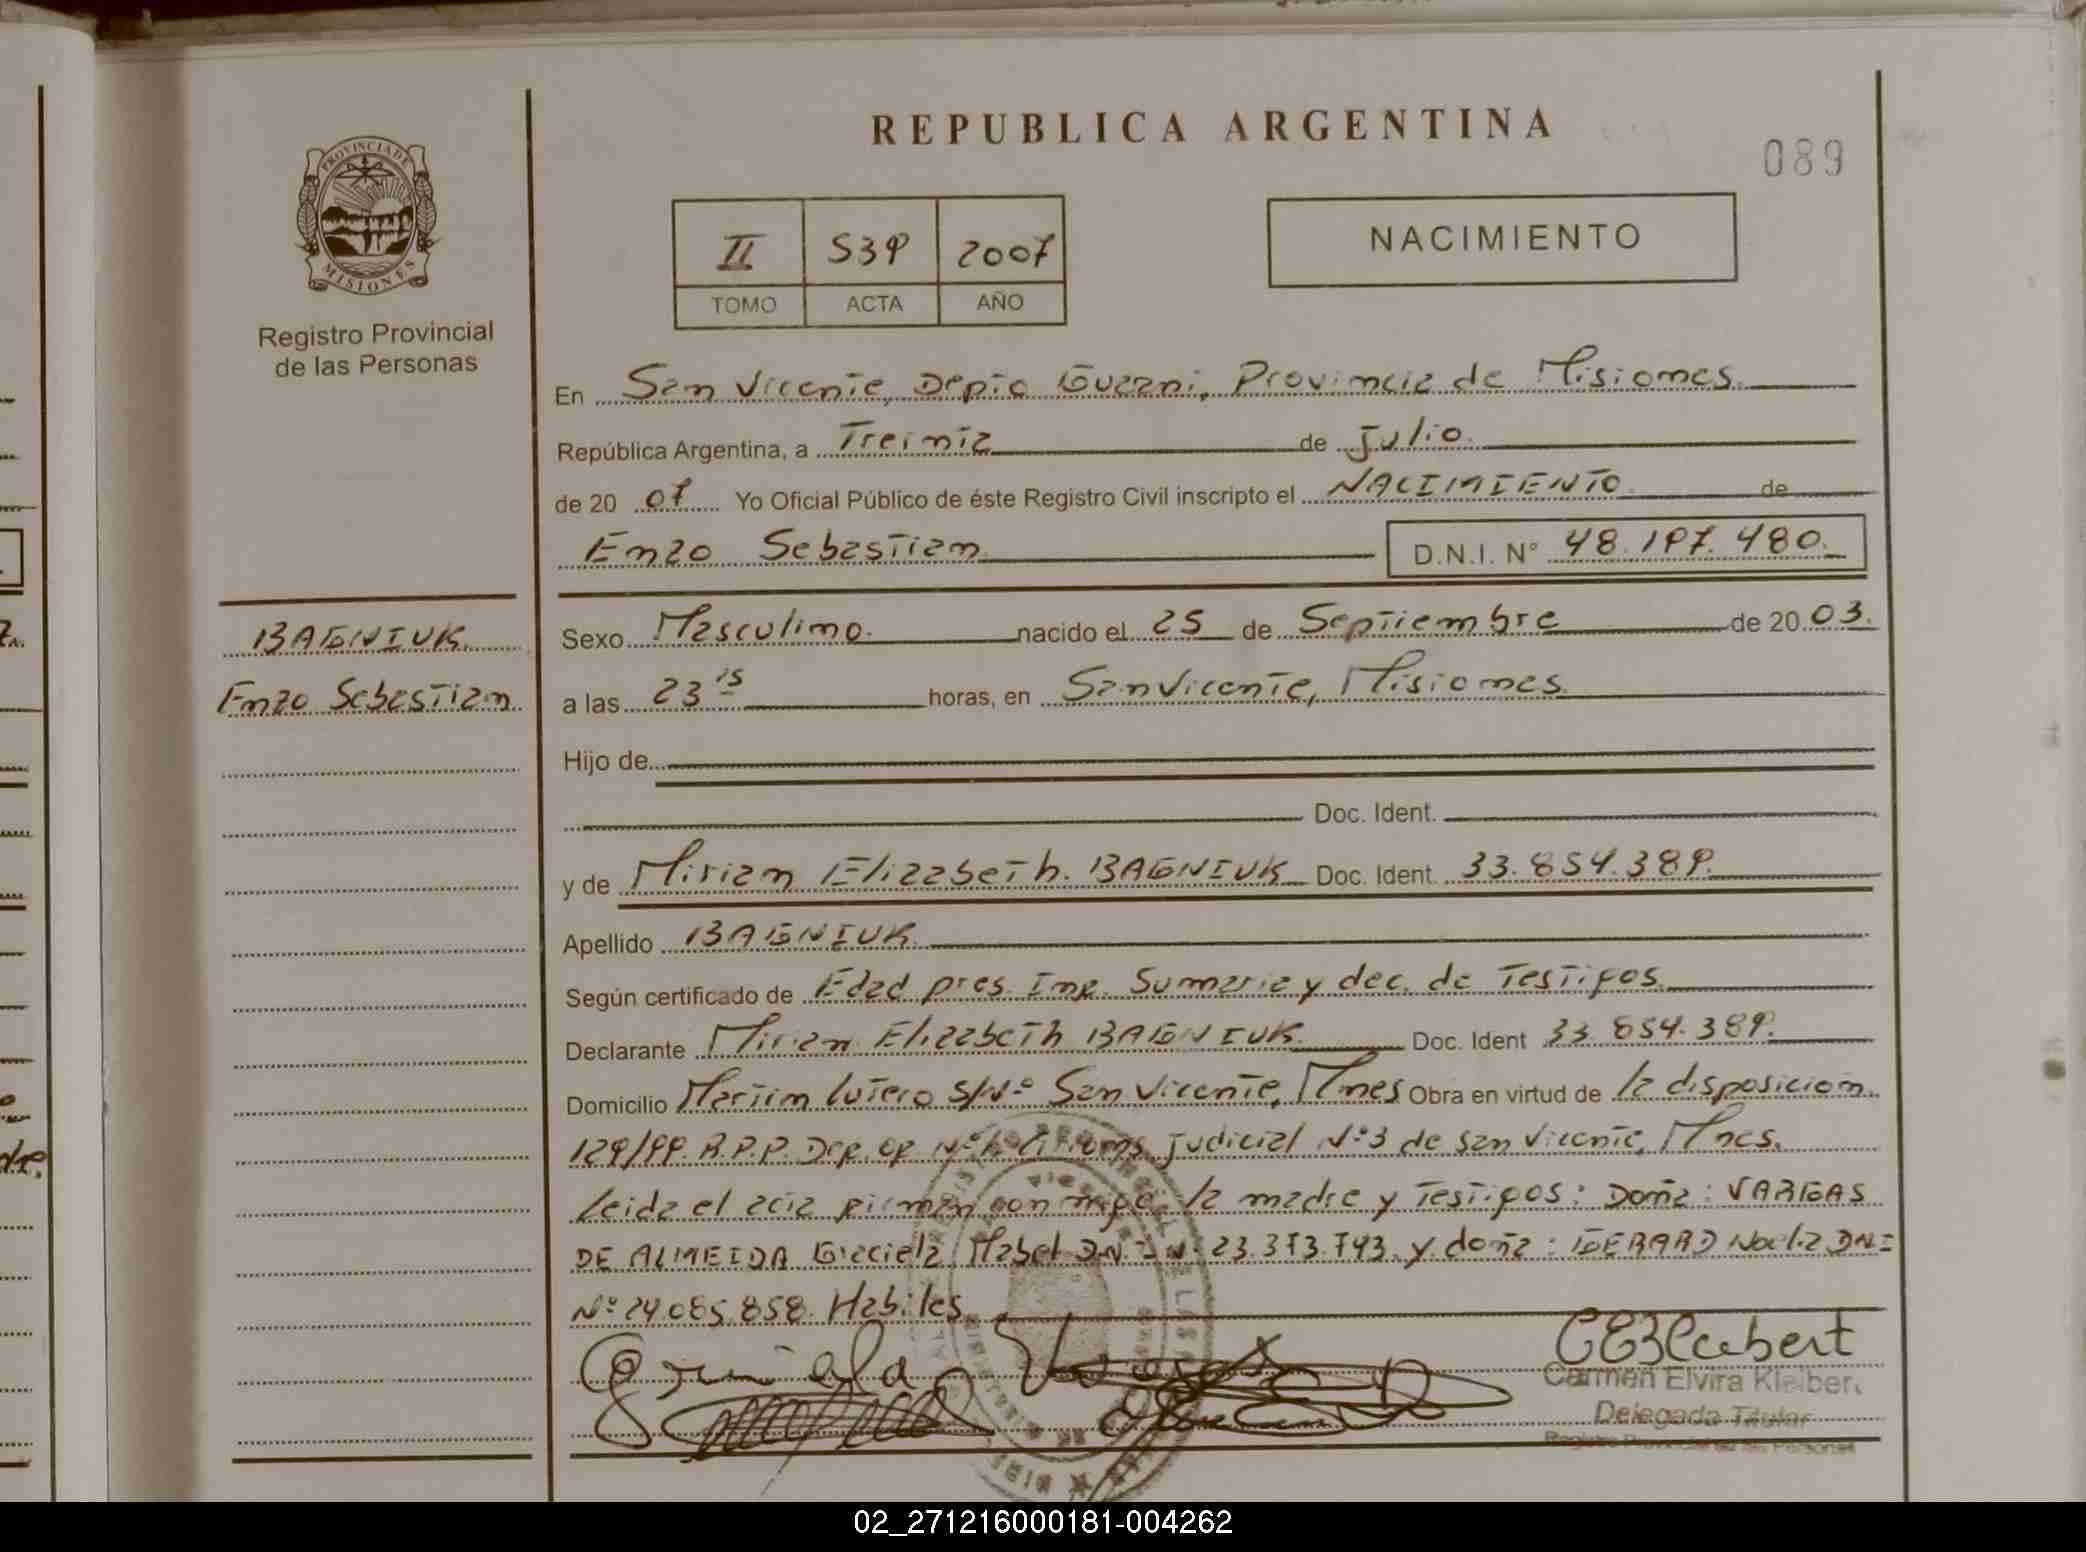 REPUBLICA ARGENTINA
089
PROVINCIA DE
MISIONES
Registro Provincial
de las Personas
II 539 2007
TOMO ACTA AÑO
NACIMIENTO
En San Vicente, Depto Guarani, Provincia de Misiones.
República Argentina, a Treinta de Julio.
de 20 07 Yo Oficial Público de éste Registro Civil inscripto el NACIMIENTO de
Enzo Sebastian D.N.I. N° 48.197.480.
BAGNIUK
Enzo Sebastian
Sexo Masculino. nacido el 25 de Septiembre de 20 03.
a las 23 15 horas, en San Vicente, Misiones.
Hijo de
Doc. Ident.
y de Mirian Elizabeth. BAGNIUK Doc. Ident. 33.854.389.
Apellido BAGNIUK.
Según certificado de Edad pres. Inf. Sumaria y dec. de Testigos.
Declarante Mirian Elizabeth BAGNIUK. Doc. Ident 33.854.389.
Domicilio Martin Lutero S/Nº San Vicente, Mnes Obra en virtud de la disposicion
129/99 R.P.P. judicial Nº3 de San Vicente, Mnes.
Leida el acta firman con migo, la madre y Testigos: Doña: VARGAS
DE ALMEIDA Graciela Mabel D.N.I Nº 23.373.743. y doña: GERARD Noelia DNI
Nº 24.085.858. Habiles
Carmen Elvira Kleibert
Delegada Titular
Registro Provincial de las Personas
02_271216000181-004262